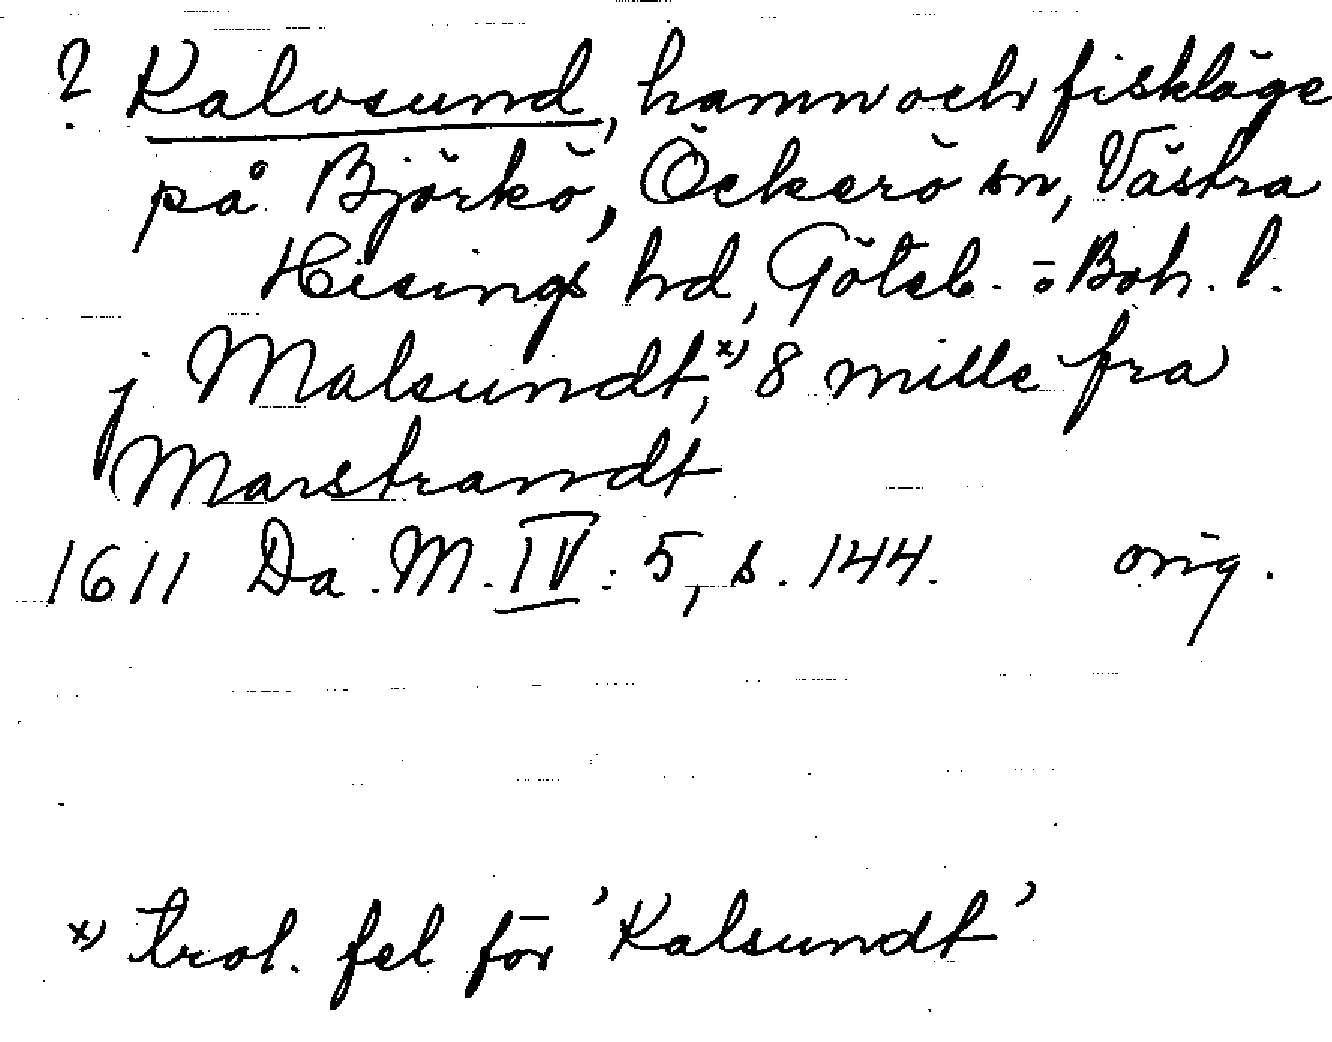 ? Kalvsund, hamn och fiskläge
på Björkö, Öckerö sn, Västra
Hisings hd, Göteb. o. Boh. l.
j Malsundt,x) 8 mille fra
Marstrandt
1611 Da. M. IV: 5, s. 144. orig.
x) trol. fel för 'Kalsundt'